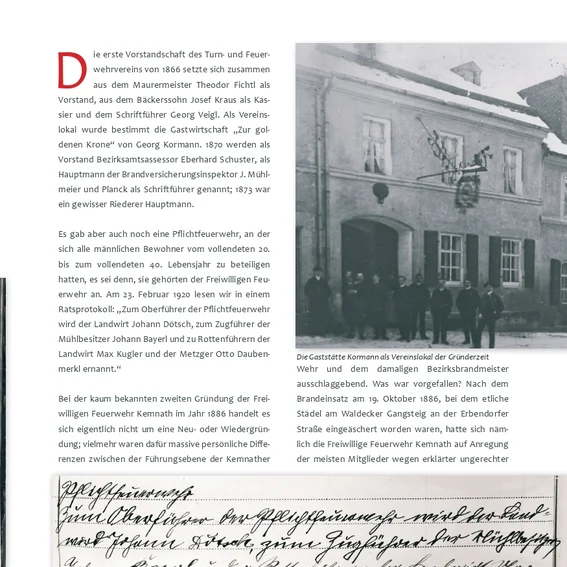 Die erste Vorstandschaft des Turn- und Feuer-
wehrvereins von 1866 setzte sich zusammen
aus dem Maurermeister Theodor Fichtl als
Vorstand, aus dem Bäckerssohn Josef Kraus als Kas-
sier und dem Schriftführer Georg Veigl. Als Vereins-
lokal wurde bestimmt die Gastwirtschaft „Zur gol-
denen Krone“ von Georg Kormann. 1870 werden als
Vorstand Bezirksamtsassessor Eberhard Schuster, als
Hauptmann der Brandversicherungsinspektor J. Mühl-
meier und Planck als Schriftführer genannt; 1873 war
ein gewisser Riederer Hauptmann.
Es gab aber auch noch eine Pflichtfeuerwehr, an der
sich alle männlichen Bewohner vom vollendeten 20.
bis zum vollendeten 40. Lebensjahr zu beteiligen
hatten, es sei denn, sie gehörten der Freiwilligen Feu-
erwehr an. Am 23. Februar 1920 lesen wir in einem
Ratsprotokoll: „Zum Oberführer der Pflichtfeuerwehr
wird der Landwirt Johann Dötsch, zum Zugführer der
Mühlbesitzer Johann Bayerl und zu Rottenführern der
Landwirt Max Kugler und der Metzger Otto Dauben-
merkl ernannt.“
Bei der kaum bekannten zweiten Gründung der Frei-
willigen Feuerwehr Kemnath im Jahr 1886 handelt es
sich eigentlich nicht um eine Neu- oder Wiedergrün-
dung; vielmehr waren dafür massive persönliche Diffe-
renzen zwischen der Führungsebene der Kemnather
Die Gaststätte Kormann als Vereinslokal der Gründerzeit
Wehr und dem damaligen Bezirksbrandmeister
ausschlaggebend. Was war vorgefallen? Nach dem
Brandeinsatz am 19. Oktober 1886, bei dem etliche
Städel am Waldecker Gangsteig an der Erbendorfer
Straße eingeäschert worden waren, hatte sich näm-
lich die Freiwillige Feuerwehr Kemnath auf Anregung
der meisten Mitglieder wegen erklärter ungerechter
Pflichtfeuerwehr
Zum Oberführer der Pflichtfeuerwehr wird der Land-
wirt Johann Dötsch, zum Zugführer der Mühlbesitzer